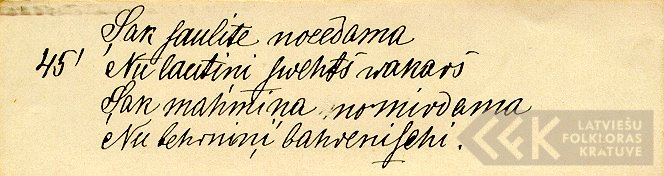 Sak saulite noeedama
45' Nu lautini swehts wakars
Sak mahmina nomirdama
Nu behrnini bahrenischi.
LATVIEŠU
FOLKLORAS
KRĀTUVE